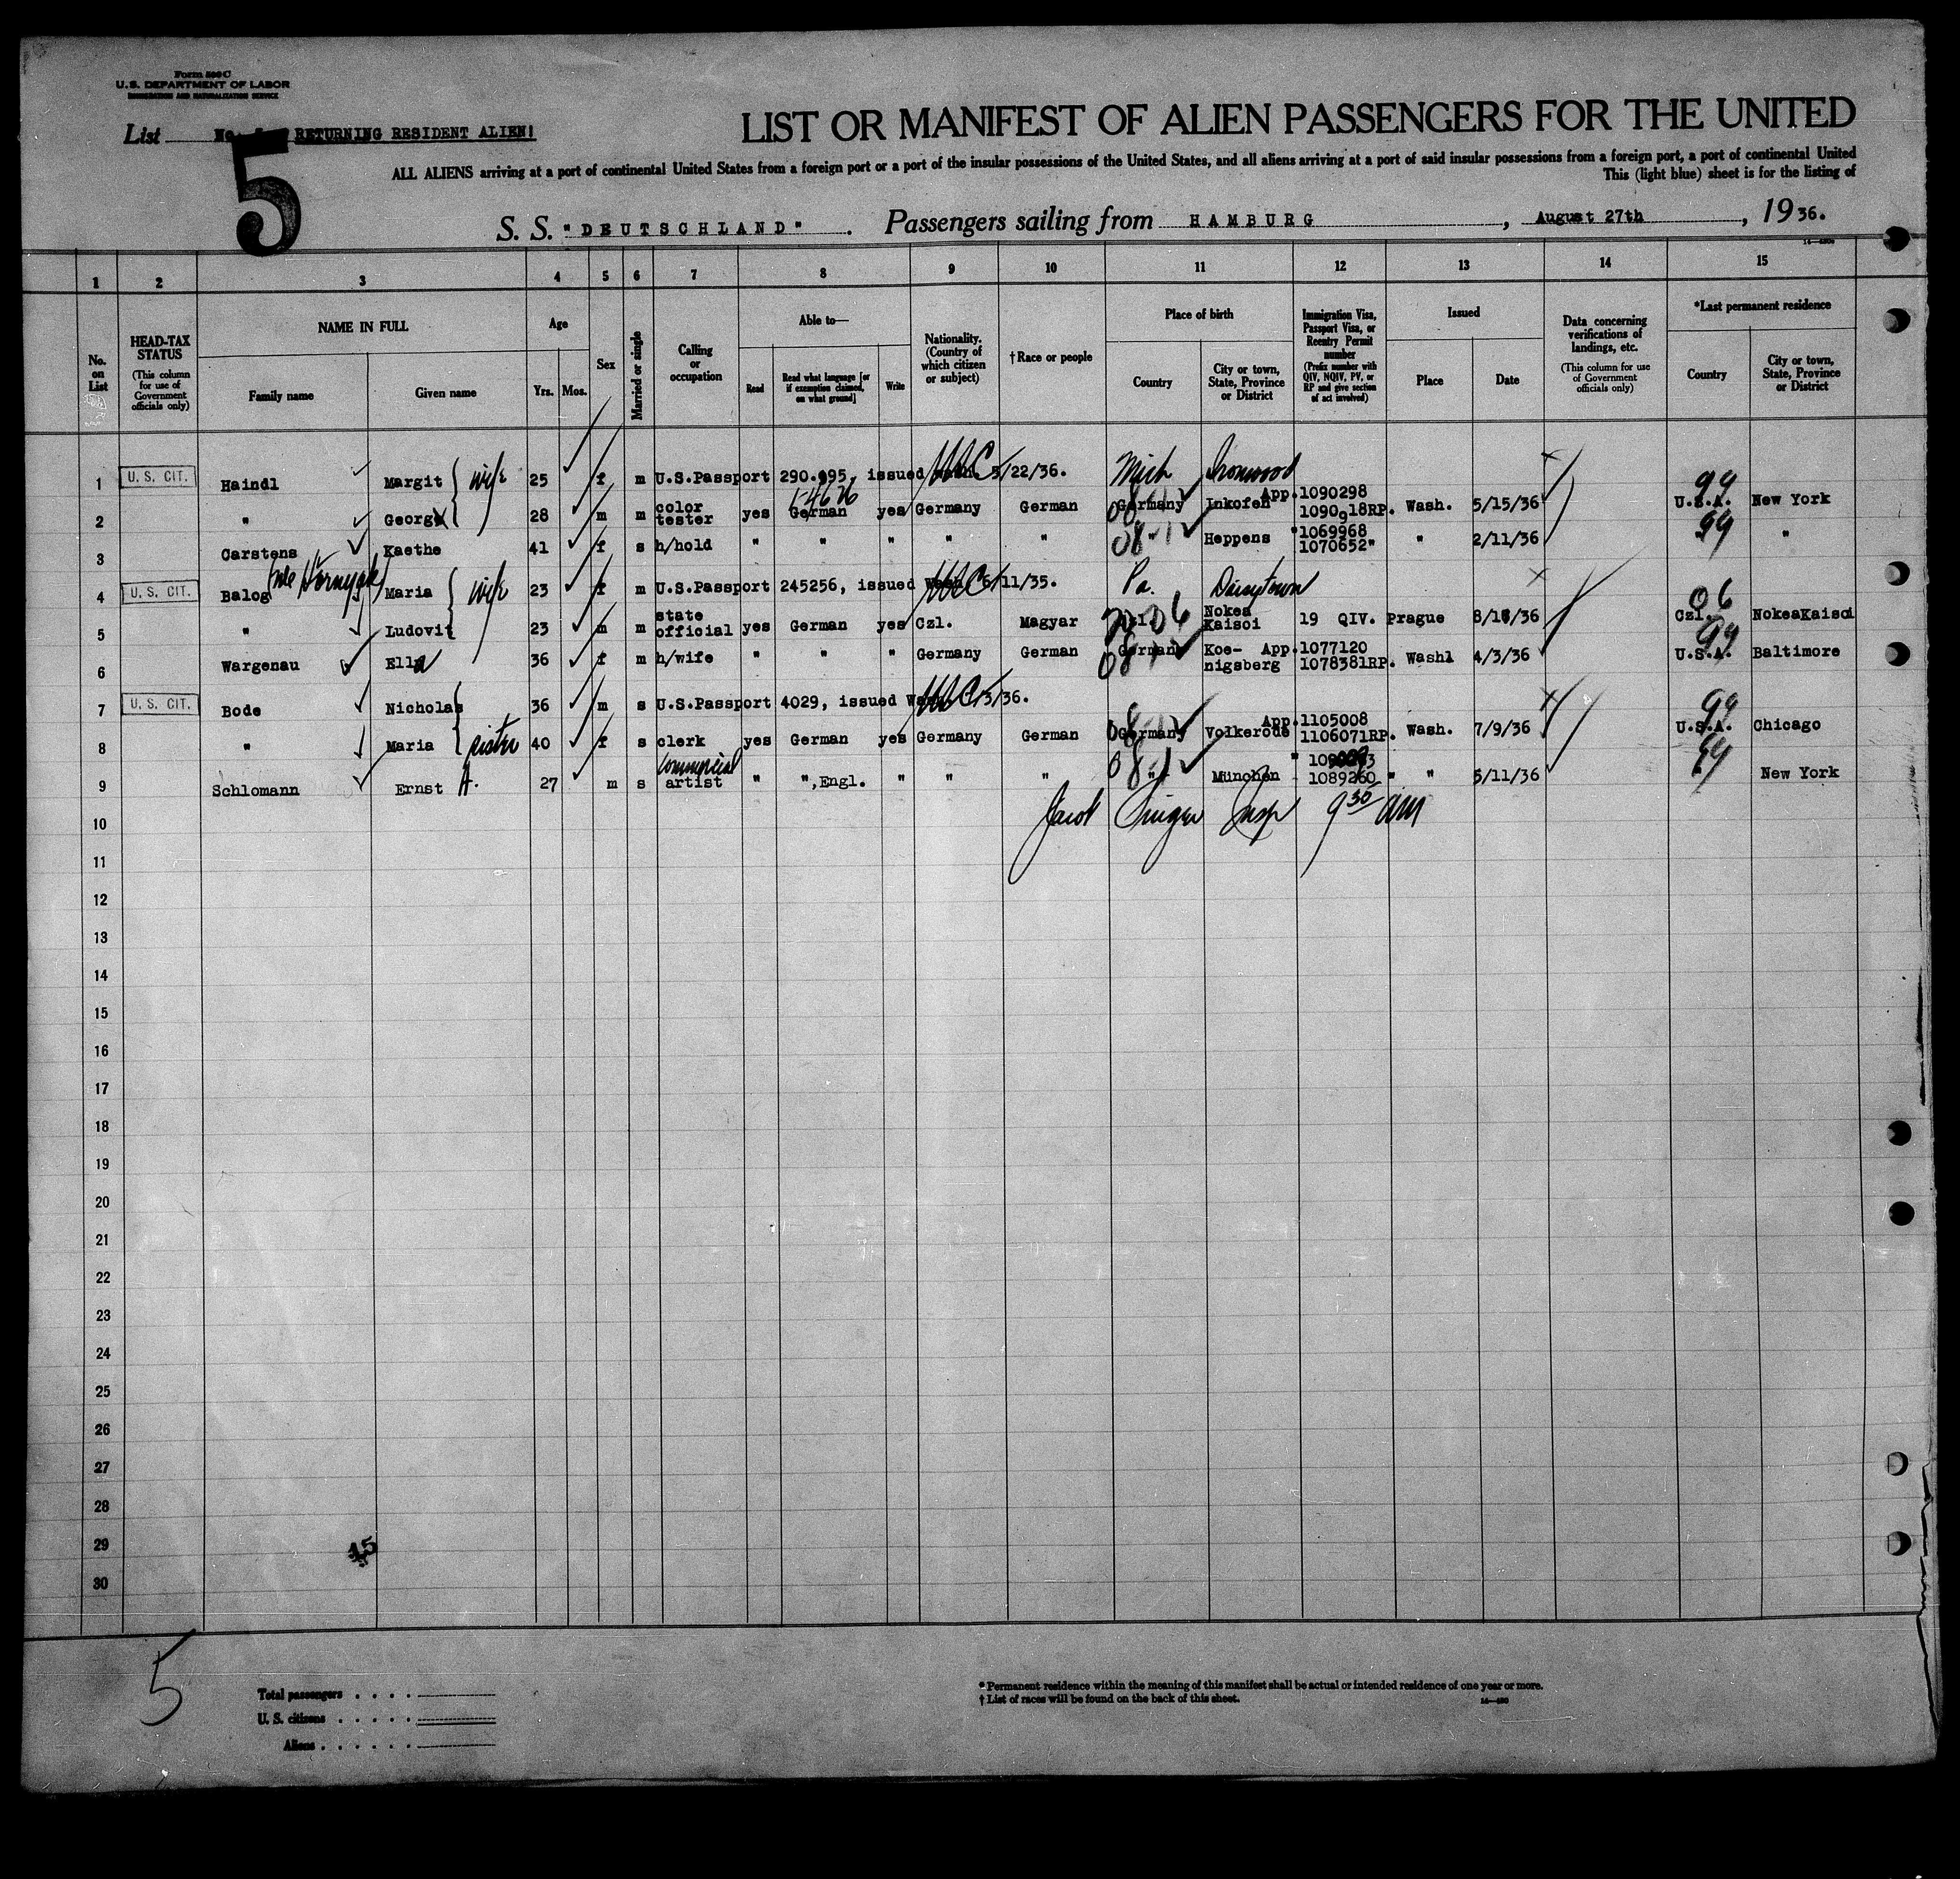 Form 500 C
U.S. DEPARTMENT OF LABOR
IMMIGRATION AND NATURALIZATION SERVICE
List No. 5 RETURNING RESIDENT ALIEN!
LIST OR MANIFEST OF ALIEN PASSENGERS FOR THE UNITED
ALL ALIENS arriving at a port of continental United States from a foreign port or a port of the insular possessions of the United States, and all aliens arriving at a port of said insular possessions from a foreign port, a port of continental United
This (light blue) sheet is for the listing of
5
S. S. "DEUTSCHLAND". Passengers sailing from HAMBURG, August 27th, 1936.
1 2 3 4 5 6 7 8 9 10 11 12 13 14 15
No. on List
HEAD-TAX STATUS (This column for use of Government officials only)
NAME IN FULL
Family name Given name
Age
Yrs. Mos.
Sex
Married or single
Calling or occupation
Able to—
Read Read what language [or if exemption claimed, on what ground] Write
Nationality. (Country of which citizen or subject)
†Race or people
Place of birth
Country City or town, State, Province or District
Immigration Visa, Passport Visa, or Reentry Permit number (Prefix number with QIV, NQIV, PV, or RP and give section of act involved)
Issued
Place Date
Data concerning verifications of landings, etc. (This column for use of Government officials only)
*Last permanent residence
Country City or town, State, Province or District
1 U. S. CIT. Haindl Margit wife 25 f m U.S.Passport 290.995, issued Wash. 5/22/36. Mich Ironwood
2 " Georg 28 m m color tester yes German yes Germany German Germany Inkofen App.1090298 1090918RP. Wash. 5/15/36 99 U.S.A. New York
3 Carstens Kaethe 41 f s h/hold " " " " " 08 " Heppens "1069968 1070652" " 2/11/36 99 "
4 U. S. CIT. Balog (nee Hornyak) Maria wife 23 f m U.S.Passport 245256, issued Wash. 6/11/35. Pa. Daisytown
5 " Ludovit 23 m m state official yes German yes Czl. Magyar Nokea Kaisoi 19 QIV. Prague 8/18/36 06 Czl. NokeaKaisoi
6 Wargenau Ella 36 f m h/wife " " " Germany German Germany Koe- nigsberg App.1077120 1078381RP. Washl 4/3/36 99 U.S.A. Baltimore
7 U. S. CIT. Bode Nicholas 36 m s U.S.Passport 4029, issued /3/36.
8 " Maria sister 40 f s clerk yes German yes Germany German Germany Volkerode App.1105008 1106071RP. Wash. 7/9/36 99 U.S.A. Chicago
9 Schlomann Ernst H. 27 m s Commercial artist " ",Engl. " " " 08 " München 1089260 " " 5/11/36 99 New York
10 Jacob Singer Insp 9 30 am
11
12
13
14
15
16
17
18
19
20
21
22
23
24
25
26
27
28
29
30
15
5
Total passengers . . . .
U. S. citizens . . . . .
Aliens . . . . . .
* Permanent residence within the meaning of this manifest shall be actual or intended residence of one year or more.
† List of races will be found on the back of this sheet.